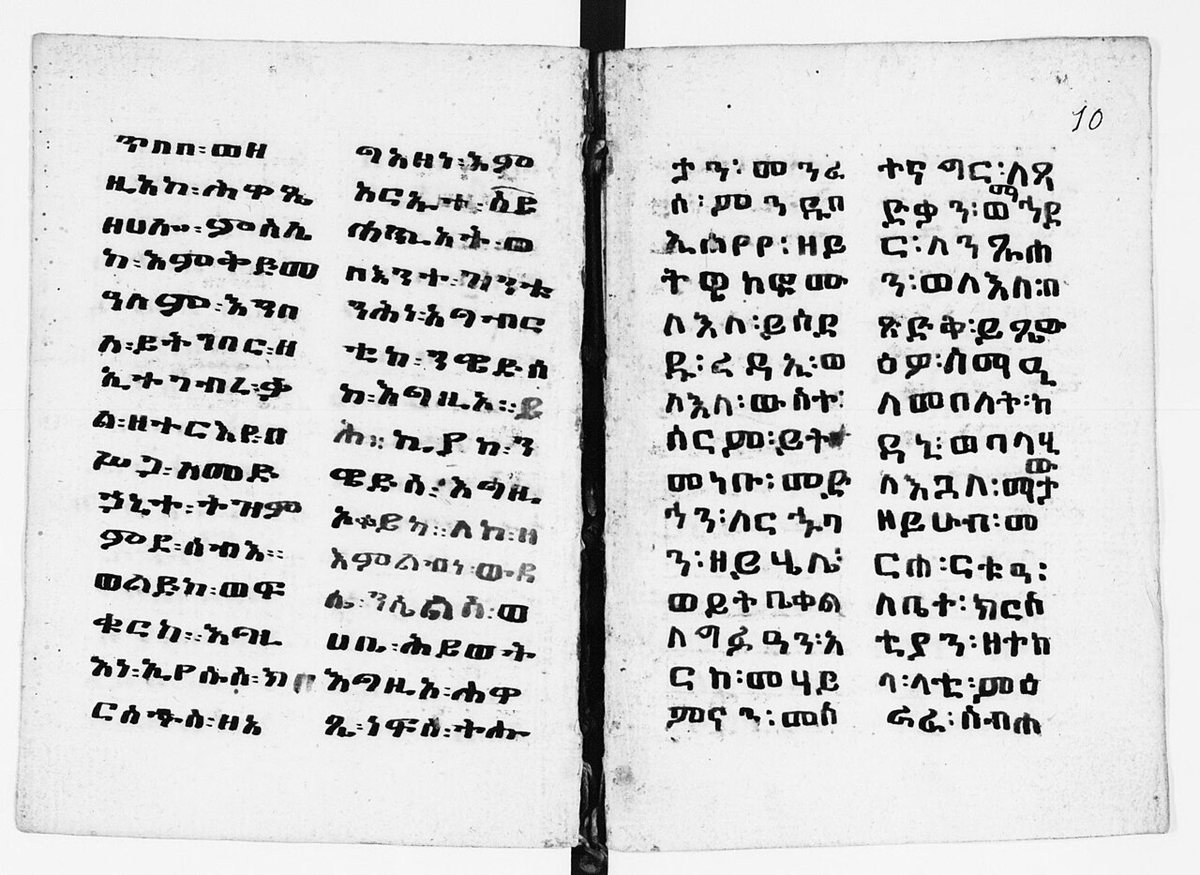 ጥበበ፡ወዘ
ዚአከ፡ሐዋጼ
ዘሀሎ፡ምስሊ
ከ፡እምቅድመ
ዓለም፡እንበ
ለ፡ይትገበር፡ዘ
ኢተገብረ፡ቃ
ል፡ዘተርእየ፡በ
ሥጋ፡አመድ
ኃኒተ፡ትዝም
ምደ፡ሰብእ።
ወልድከ፡ወፍ
ቁርከ።እግዚ
እነ፡ኢየሱስ፡ክ
ርስቶስ፡ዘእ
ግእዘነ፡እም
አርኤተ፡ሰይ
ሐጺአት፡ወ
በእንተ፡ዝንቱ
ንሕነ፡አግብር
ቲከ፡ንዌድሰ
ከ፡እግዚአ።ይ
ሕ።ኪያከ፡ን
ዌድስ፡እግዚ
ኦቀይከ።ለከ፡ዘ
እምልብነ፡ውዳ
ሴ፡ንሲልስ፡ወ
ሀቤ፡ሕይወት
እግዚአ፡ሐዋ
ጺ፡ነፍስ፡ትሑ
10
ታን፡መንፈ
ስ፡ምንዱበ
ኢሰየየ፡ዘይ
ትዌከፎሙ
ለእለ፡ይሰደ
ዱ፡ረዳኢ፡ወ
ለእለ፡ውስተ፡
ሰርም፡ይት
መነቡ፡መድ
ኅን፡ለርኁባ
ን፡ዘይሄሊ፡
ወይትቤቀል
ለግፉዓን፡አ
ርከ፡መሃይ
ምናን፡መስ
ተናግር፡ለጻ
ድቃን፡ወማኅደ
ር፡ለንጹሐ
ን፡ወለእለ፡በ
ጽድቅ፡ይጼው
ዕዎ፡ስማዒ
ለመበለት፡ከ
ዳኒ፡ወባላሂ
ለእጓለ፡ማውታ
ዘይሁብ፡መ
ርሐ፡ርቱዓ፡
ለቤተ፡ክርስ
ቲያን፡ዘተከ
ላ፡ላቲ፡ምዕ
ራፈ፡ስብሐ